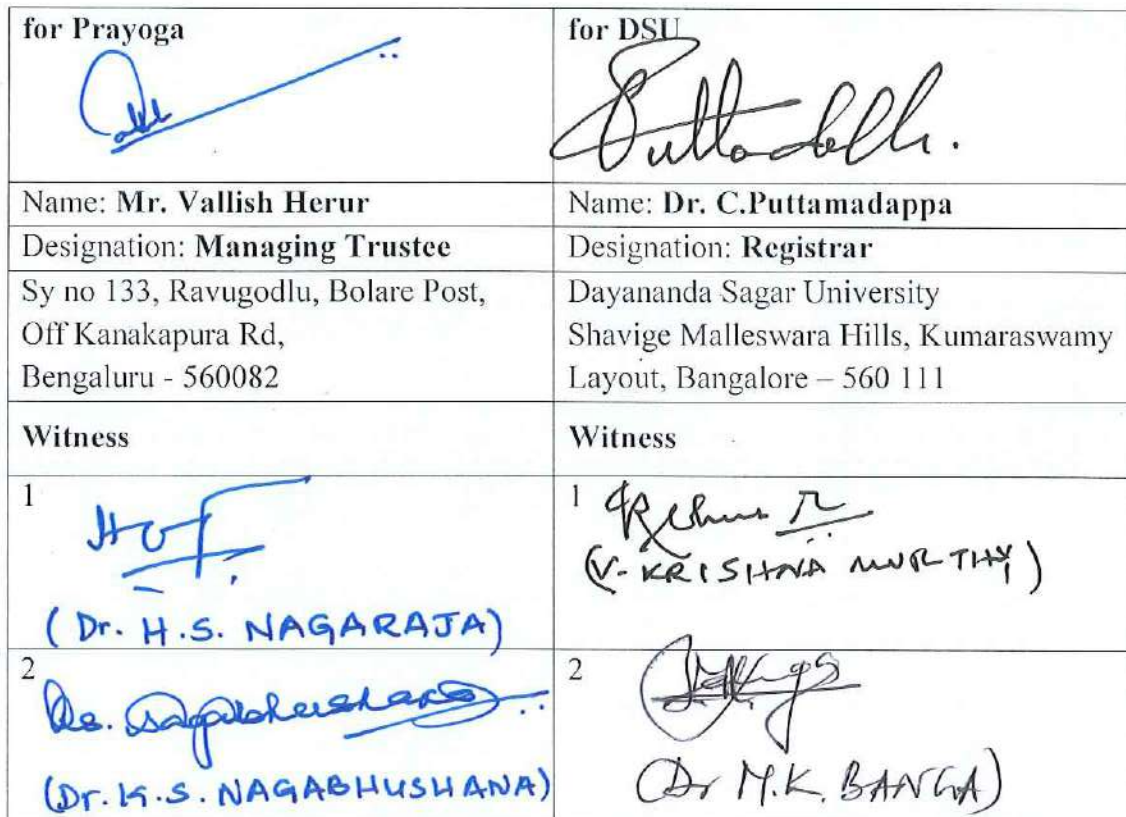 for Prayoga
for DSU
Puttadalli.
Name: Mr. Vallish Herur
Name: Dr. C.Puttamadappa
Designation: Managing Trustee
Designation: Registrar
Sy no 133, Ravugodlu, Bolare Post,
Off Kanakapura Rd,
Bengaluru - 560082
Dayananda Sagar University
Shavige Malleswara Hills, Kumaraswamy
Layout, Bangalore – 560 111
Witness
Witness
1
(Dr. H.S. NAGARAJA)
1
(V. KRISHNA MURTHY)
2
(Dr. K.S. NAGABHUSHANA)
2
(Dr M.K. BANGA)